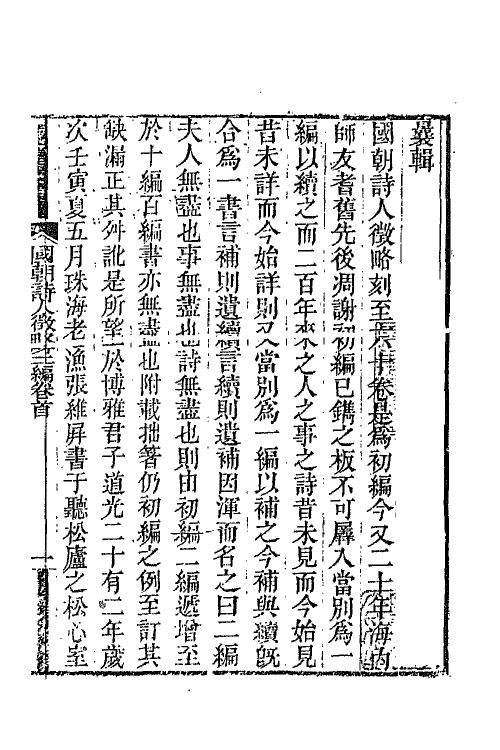 曩輯
國朝詩人徵略刻至六十卷是爲初編今又二十年海內
師友耆舊先後凋謝初編已鐫之板不可羼入當別爲一
編以續之而二百年來之人之事之詩昔未見而今始見
昔未詳而今始詳則又當別爲一編以補之今補與續旣
合爲一書言補則遺續言續則遺補因渾而名之曰二編
夫人無盡也事無盡也詩無盡也則由初編二編遞增至
於十編百編書亦無盡也附載拙箸仍初編之例至訂其
缺漏正其舛訛是所望於博雅君子道光二十有二年歲
次壬寅夏五月珠海老漁張維屏書于聽松廬之松心室
國朝詩人徵略二編卷首
一